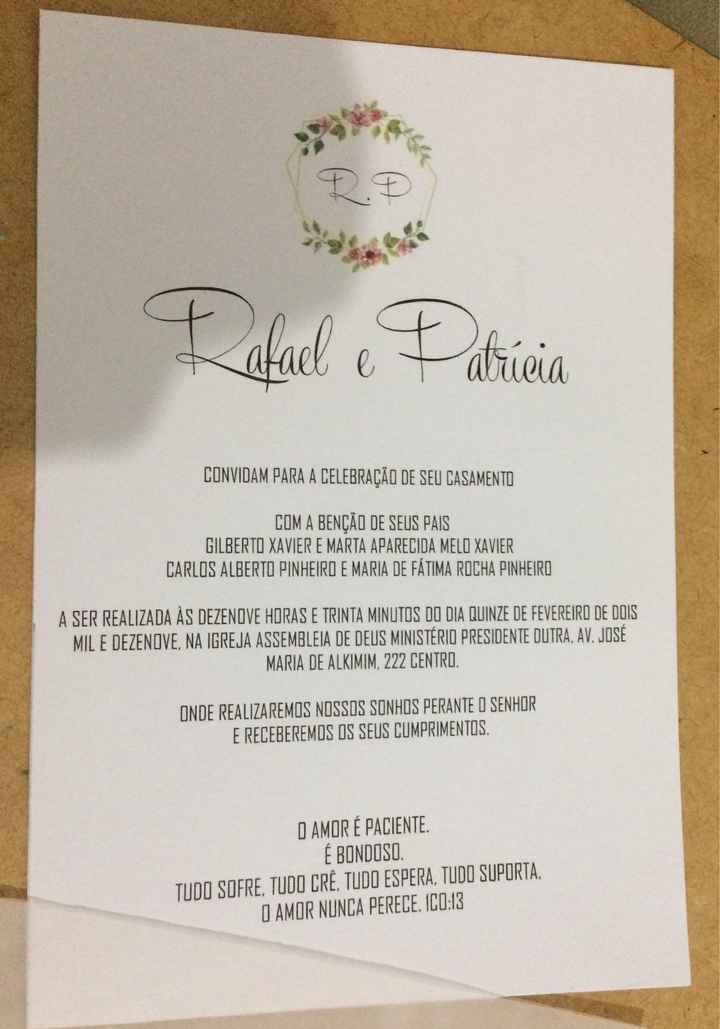 R.P
Rafael e Patrícia
CONVIDAM PARA A CELEBRAÇÃO DE SEU CASAMENTO
COM A BENÇÃO DE SEUS PAIS
GILBERTO XAVIER E MARTA APARECIDA MELO XAVIER
CARLOS ALBERTO PINHEIRO E MARIA DE FÁTIMA ROCHA PINHEIRO
A SER REALIZADA ÀS DEZENOVE HORAS E TRINTA MINUTOS DO DIA QUINZE DE FEVEREIRO DE DOIS
MIL E DEZENOVE, NA IGREJA ASSEMBLEIA DE DEUS MINISTÉRIO PRESIDENTE DUTRA, AV. JOSÉ
MARIA DE ALKIMIM, 222 CENTRO.
ONDE REALIZAREMOS NOSSOS SONHOS PERANTE O SENHOR
E RECEBEREMOS OS SEUS CUMPRIMENTOS.
O AMOR É PACIENTE.
É BONDOSO.
TUDO SOFRE, TUDO CRÊ, TUDO ESPERA, TUDO SUPORTA.
O AMOR NUNCA PERECE. 1CO:13